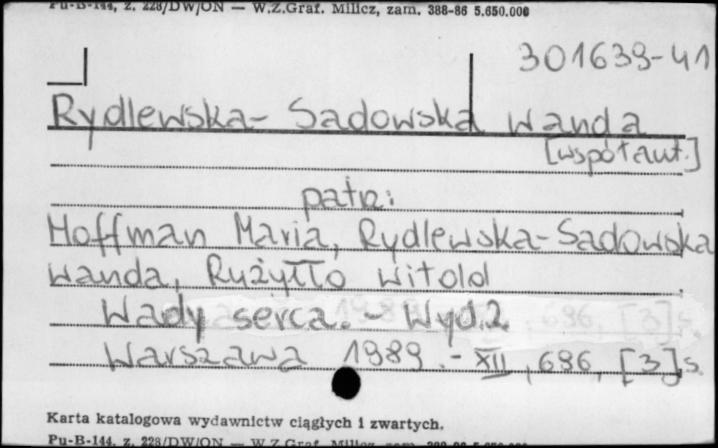 Pu-B-144, z. 228/DW/ON — W.Z.Graf. Milicz, zam. 388-86 5.650.000
301639-41
Rydlewska-Sadowska Wanda
[współaut.]
patrz:
Hoffman Maria, Rydlewska-Sadowska
Wanda, Rużyłło Witold
Wady serca. - Wyd. 2.
Warszawa 1989. - XII, 696, [3] s.
Karta katalogowa wydawnictw ciągłych i zwartych.
Pu-B-144, z. 228/DW/ON — W.Z.Graf. Milicz, zam.